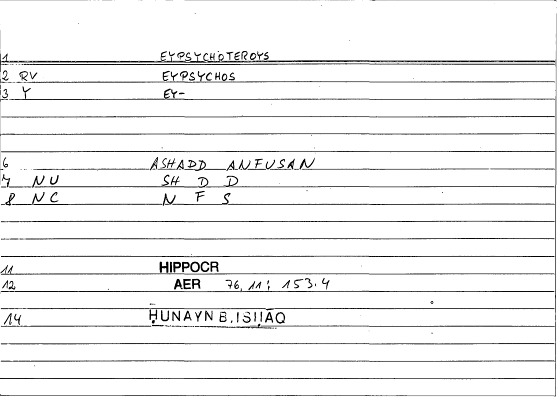 1 EYPSYCHOTEROYS
2 RV EYPSYCHOS
3 Y EY-
6 ASHADD ANFUSAN
7 NU SH D D
8 NC N F S
11 HIPPOCR
12 AER 76,11; 153.4
14 ḤUNAYN B. ISḤĀQ